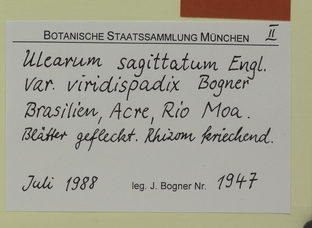 BOTANISCHE STAATSSAMMLUNG MÜNCHEN II
Ulearum sagittatum Engl.
var. viridispadix Bogner
Brasilien, Acre, Rio Moa.
Blätter gefleckt. Rhizom kriechend.
Juli 1988 leg. J. Bogner Nr. 1947